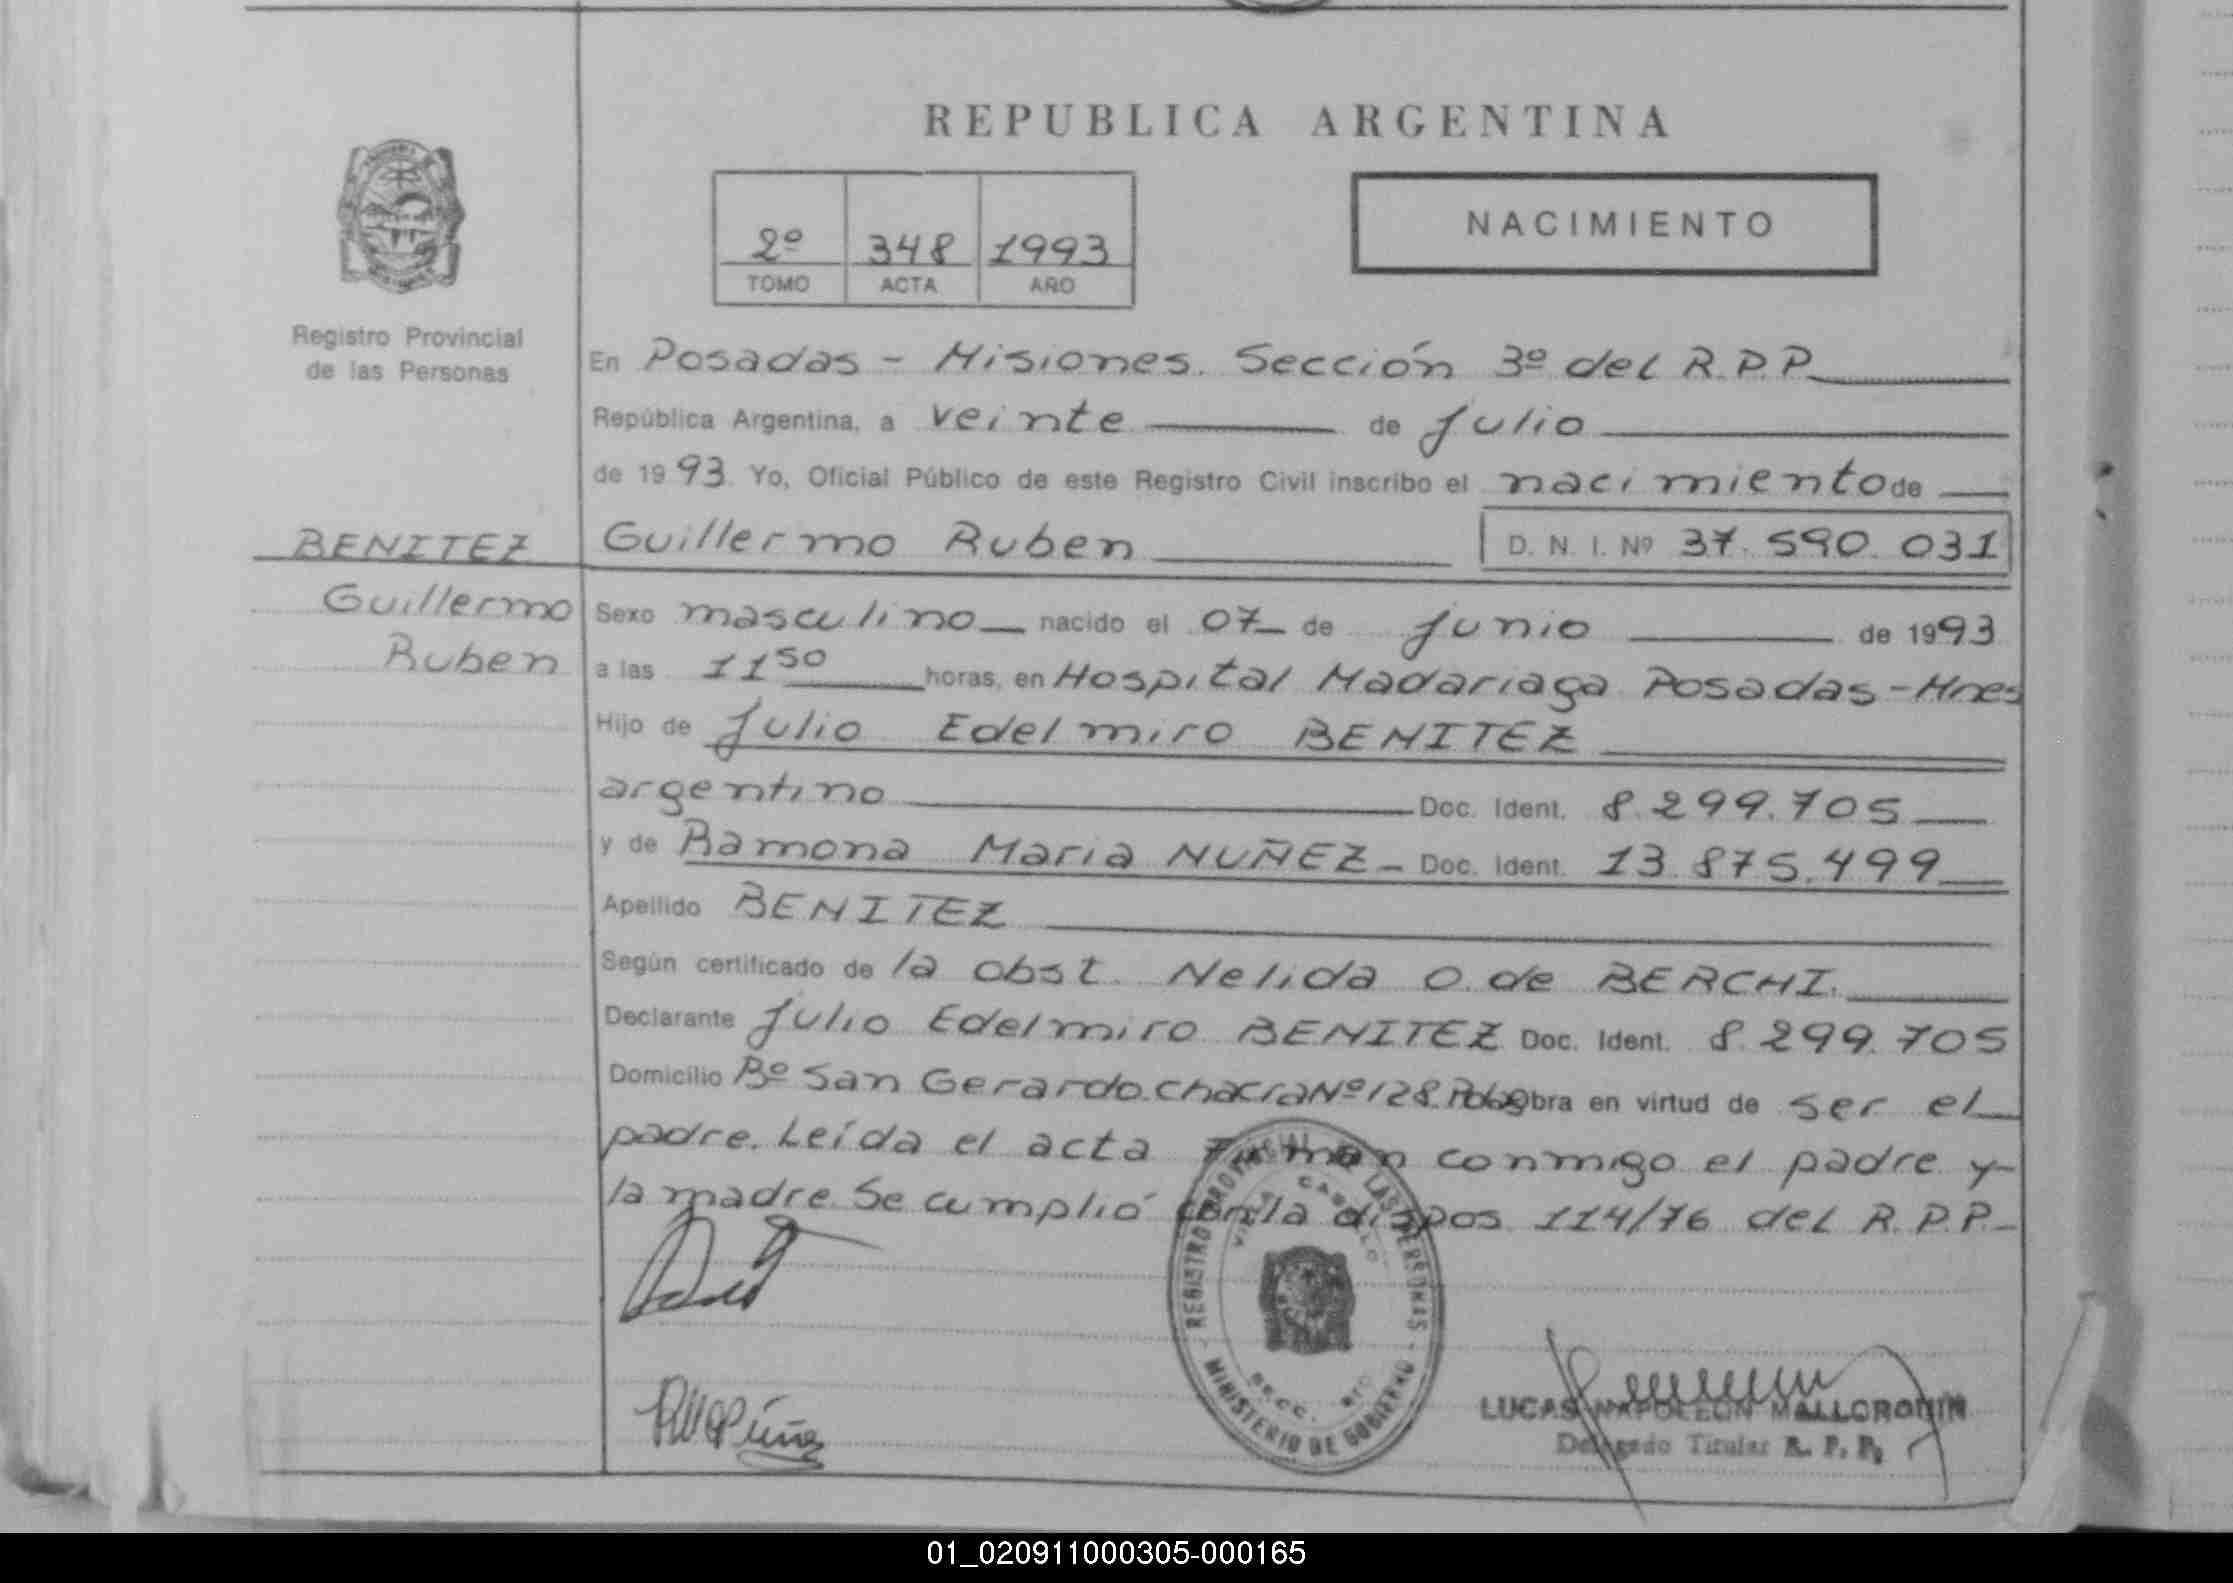 REPUBLICA ARGENTINA
2º 348 1993
TOMO ACTA AÑO
NACIMIENTO
Registro Provincial
de las Personas
En Posadas - Misiones. Sección 3º del R.P.P.
República Argentina, a veinte de julio
de 1993 Yo, Oficial Público de este Registro Civil inscribo el nacimiento de
BENITEZ
Guillermo
Ruben
Guillermo Ruben D. N. I. Nº 37.590.031
Sexo masculino nacido el 07 de junio de 1993
a las 11 50 horas, en Hospital Madariaga Posadas - Mnes
Hijo de Julio Edelmiro BENITEZ
argentino Doc. Ident. 8.299.705
y de Ramona Maria NUÑEZ - Doc. Ident. 13.875.499
Apellido BENITEZ
Según certificado de la obst. Nelida O. de BERCHI.
Declarante Julio Edelmiro BENITEZ Doc. Ident. 8.299.705
Domicilio Bº San Gerardo. Chacra Nº 128. Obra en virtud de ser el
padre. Leída el acta firman conmigo el padre y
la madre. Se cumplió con la dispos 114/76 del R.P.P.
REGISTRO PROVINCIAL DE LAS PERSONAS
MINISTERIO DE GOBIERNO
LUCAS NAPOLEON
Delegado Titular R. P. P.
01_020911000305-000165